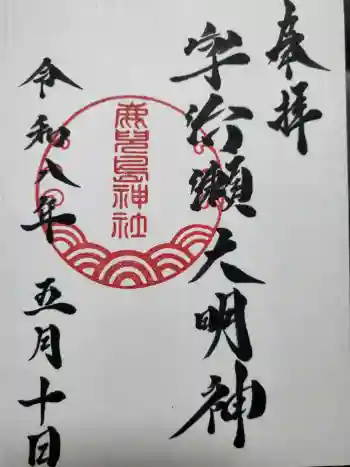 奉拝
宇治瀬大明神
鹿兒島神社
令和八年 五月十日